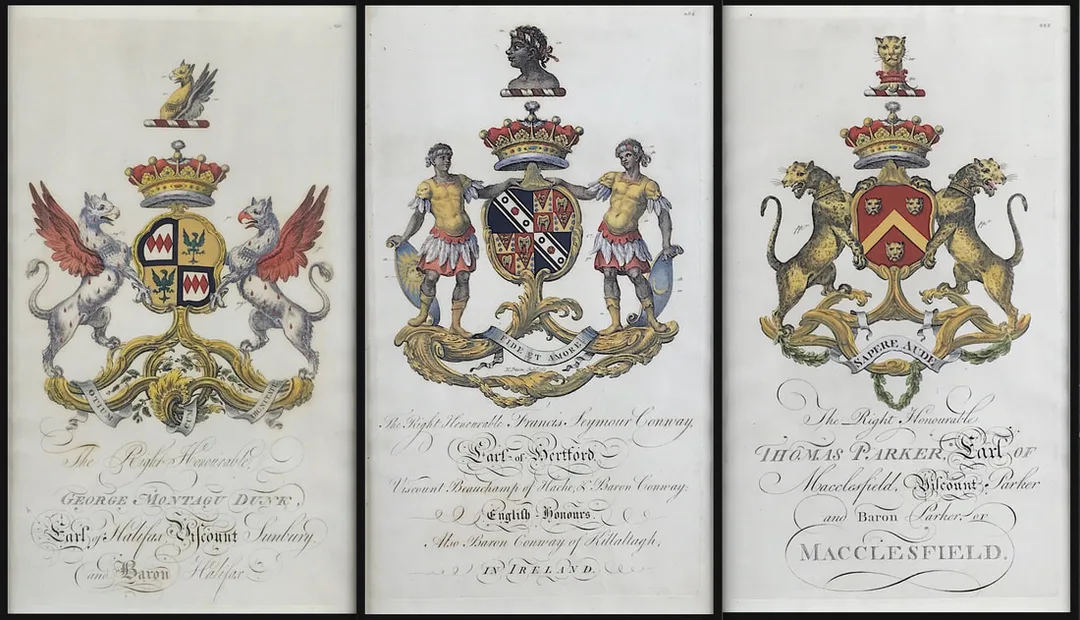 OTIUM
CUM
The Right Honourable,
GEORGE MONTAGU DUNK,
Earl of Halifax Viscount Sunbury,
and Baron Halifax
FIDE ET AMORE
The Right Honourable Francis Seymour Conway,
Earl of Hertford
Viscount Beauchamp of Hache, & Baron Conway;
English Honours
Also Baron Conway of Killultagh,
IN IRELAND.
SAPERE AUDE
The Right Honourable
THOMAS PARKER, Earl OF
Macclesfield, Viscount Parker
and Baron Parker, or
MACCLESFIELD.